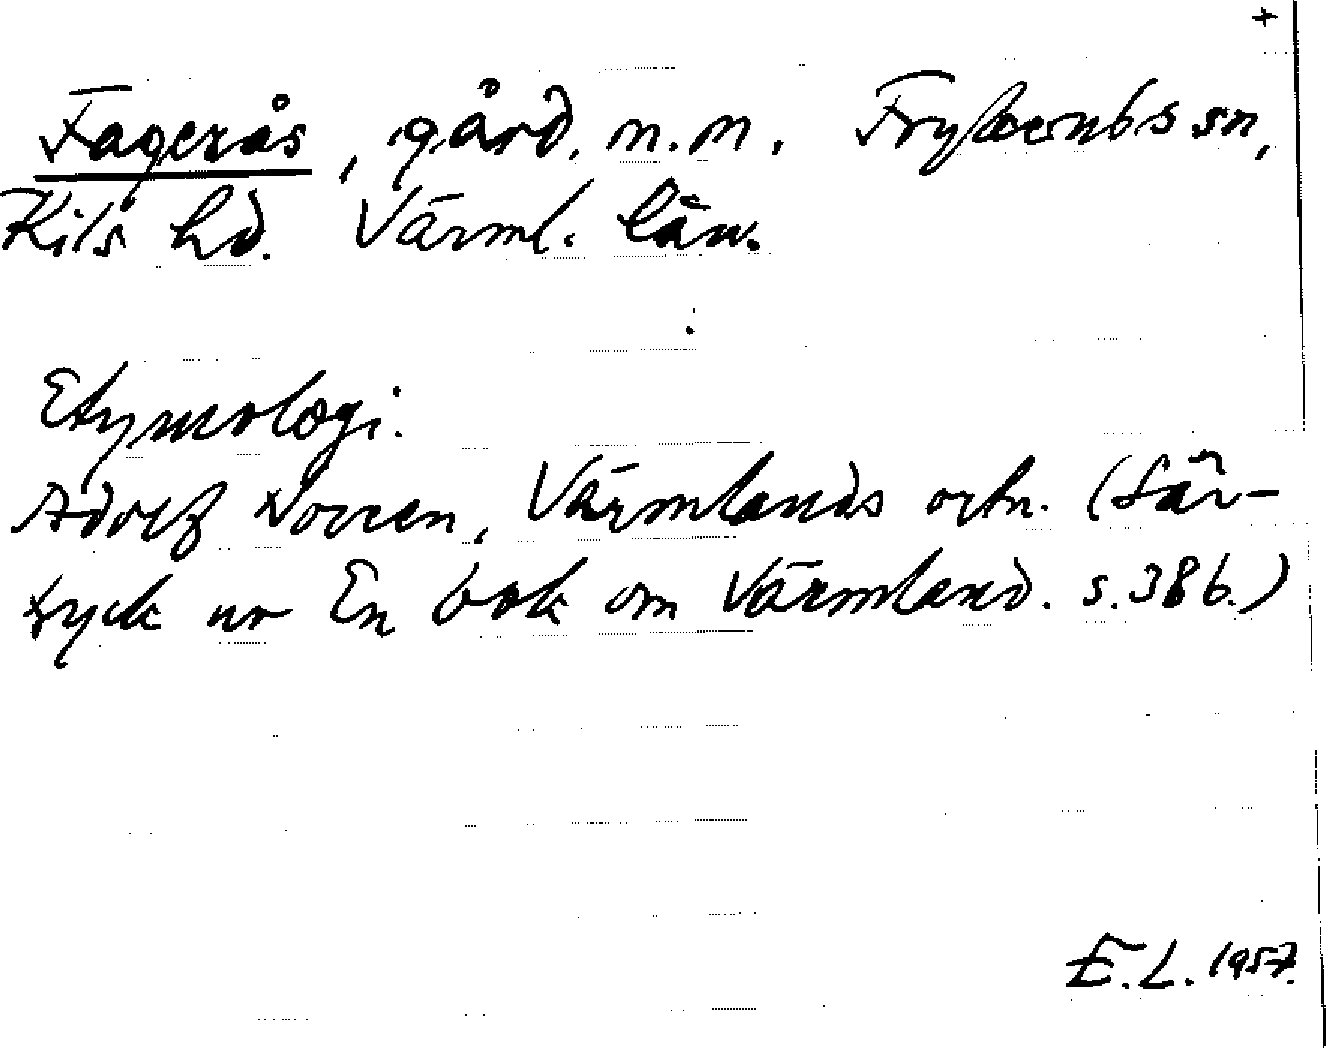 +
Fagerås, gård. m.m. Frykeruds sn,
Kils hd. Värml. län.
Etymologi.
Adolf Noreen, Värmlands ortn. (Sär-
tryck ur En bok om Värmland. s. 386.)
E.L. 1957.